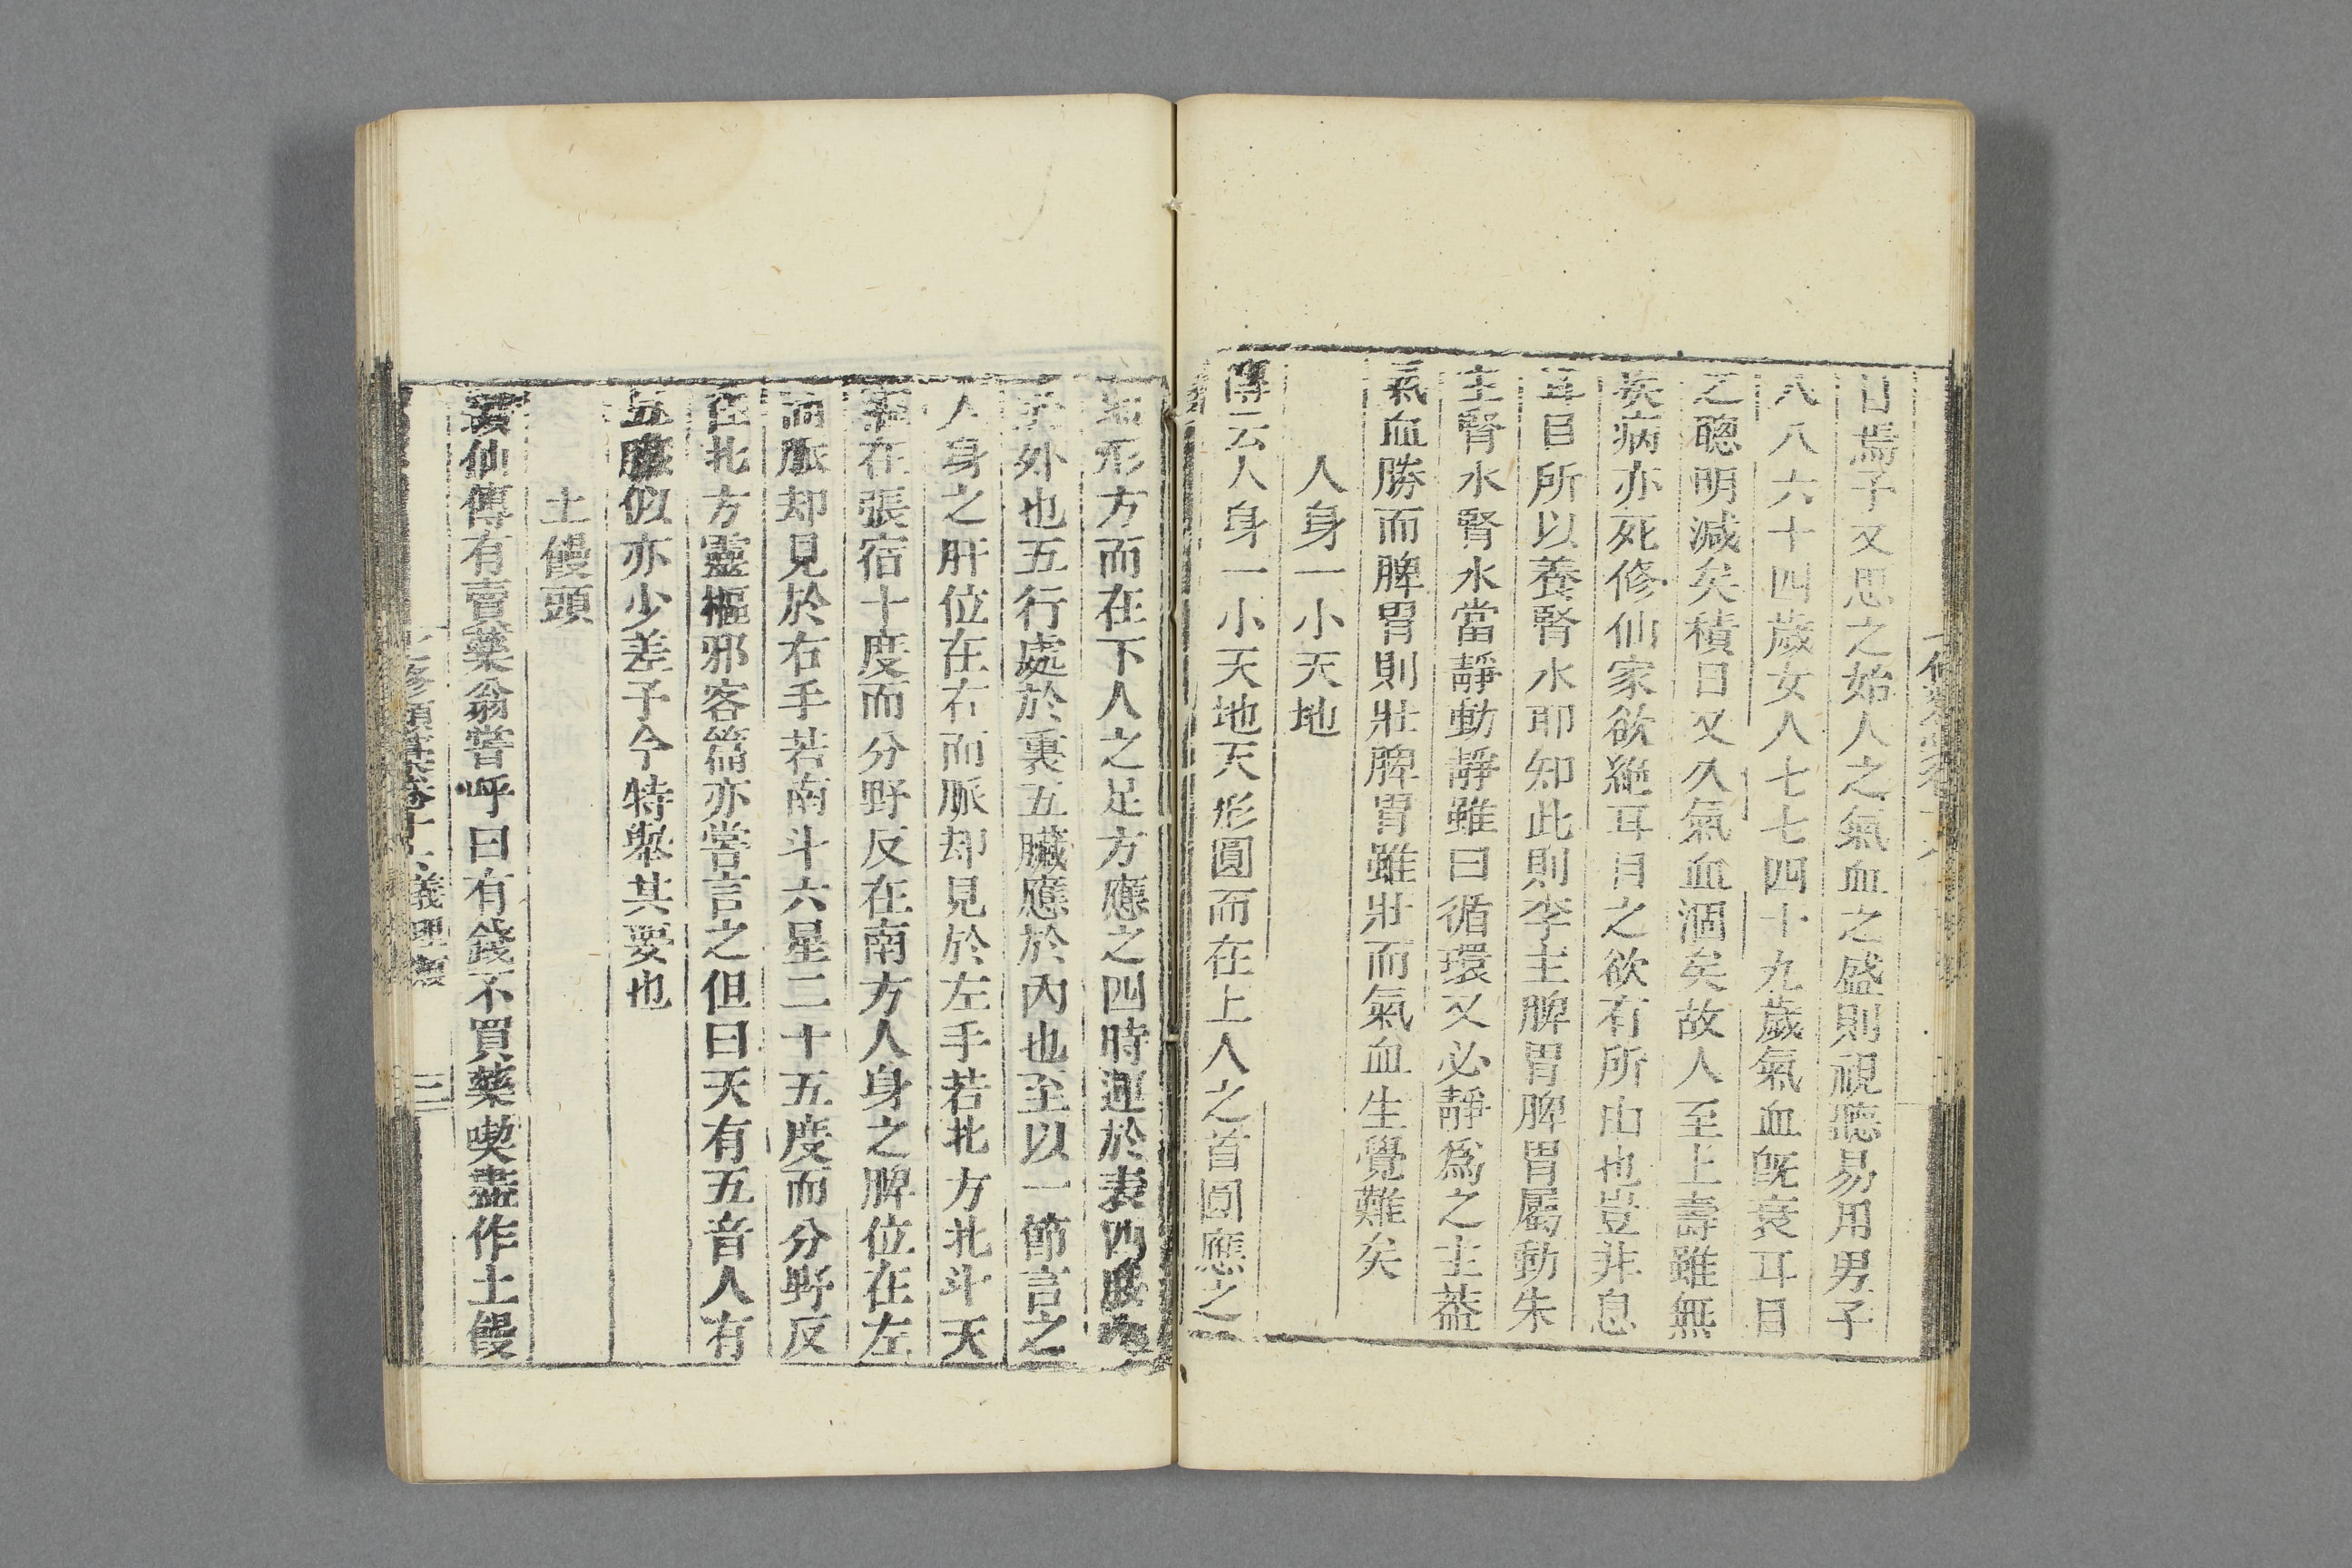 日焉子又思之始人之氣血之盛則視聽易用男子
八八六十四歲女人七七四十九歲氣血旣衰耳目
之聰明減矣積日又久氣血涸矣故人至上壽雖無
疾病亦死修仙家欲絶耳目之欲有所由也豈非息
耳目所以養腎水耶知此則李主脾胃脾胃屬動朱
主腎水腎水當靜動靜雖曰循環又必靜爲之主葢
氣血勝而脾胃則壯脾胃雖壯而氣血生覺難矣
人身一小天地
傳云人身一小天地天形圓而在上人之首圓應之
地形方而在下人之足方應之四時運於表四肢
外也五行處於裏五臟應於內也至以一節言之
人身之肝位在右而脈却見於左手若北方北斗天
在張宿十度而分野反在南方人身之脾位在左
而脈却見於右手若南斗六星二十五度而分野反
在北方靈樞邪客篇亦嘗言之但曰天有五音人有
五臟似亦少差予今特舉其要也
土饅頭
仙傳有賣藥翁嘗呼曰有錢不買藥喫盡作土饅
七修類藁卷十六義理類
三